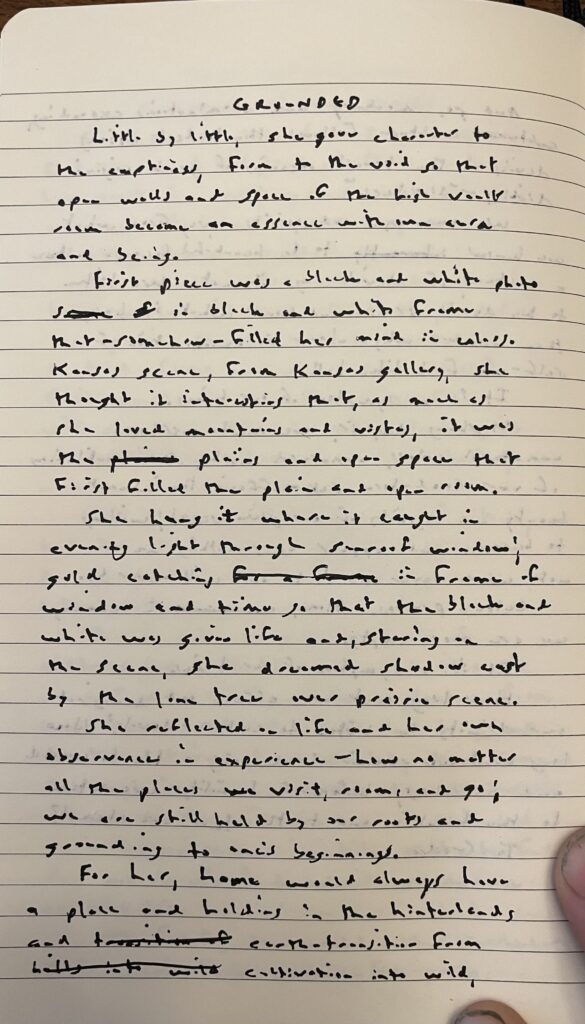 GROUNDED
Little by little, she gave character to
the emptiness, form to the void so that
open walls and space of the high vault
room become an essence with own aura
and being.
First piece was a black and white photo
in black and white frame
that-somehow-filled her mind in colors.
Kansas scene, from Kansas gallery, she
thought it interesting that, as much as
she loved mountains and vistas, it was
the plains and open space that
first filled the plain and open room.
She hung it where it caught in
evening light through sunroof window;
gold catching in frame of
window and time so that the black and
white was given life and, staring on
the scene, she dreamed shadow cast
by the lone tree over prairie scene.
She reflected on life and her own
observance in experience-how no matter
all the places we visit, roam, and go;
we are still held by our roots and
grounding to one's beginnings.
For her, home would always have
a place and holding in the hinterlands
and earth transition from
cultivation into wild,